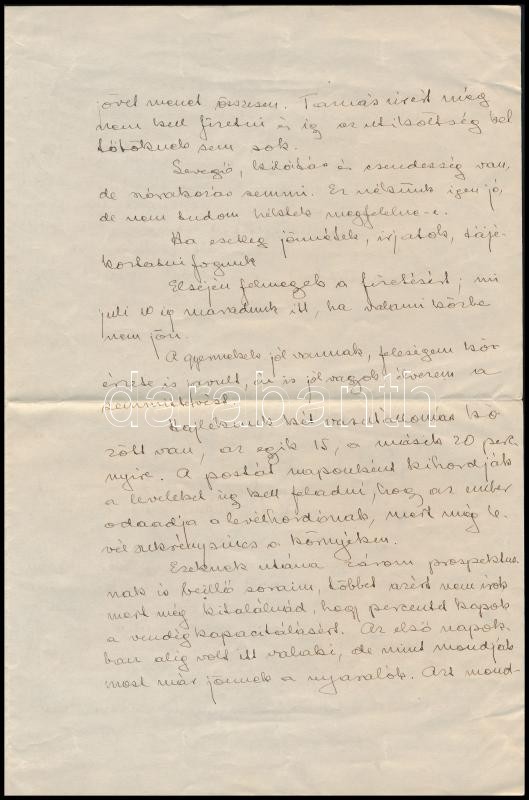 jövet menet összesen. Tamás úrért még
nem kell fizetni és így az utiköltség sel
tőtöknek sem sok.
Levegő, kilátás és csendesség van,
de szórakozás semmi. Ez nékünk igen jó,
de nem tudom néktek megfelelne-e.
Ha esetleg jönnétek, írjatok, tájé-
koztatni fogunk
Elsején felmegyek a fizetésért; mi
juli 10 ig maradunk itt, ha valami közbe
nem jön.
A gyermekek jól vannak, feleségem köz
érzete is javult, én is jól vagyok, élvezem a
semmittevést.
Hajlékunk két vasútállomás kö
zött van, az egyik 15, a másik 20 perc
nyire. A postát naponként kihordják
a leveleket úgy kell feladni, hogy az ember
odaadja a levélhordónak, mert még le
vélszekrény sincs a környéken.
Ezeknek utána zárom prospektus
nak is beillő soraim, többet azért nem írok
mert még kitalálnád, hogy percentet kapok
a vendég kapacitálásért. Az első napok
ban alig volt itt valaki, de mint mondják
most már jönnek a nyaralók. Azt mond-
darabanth